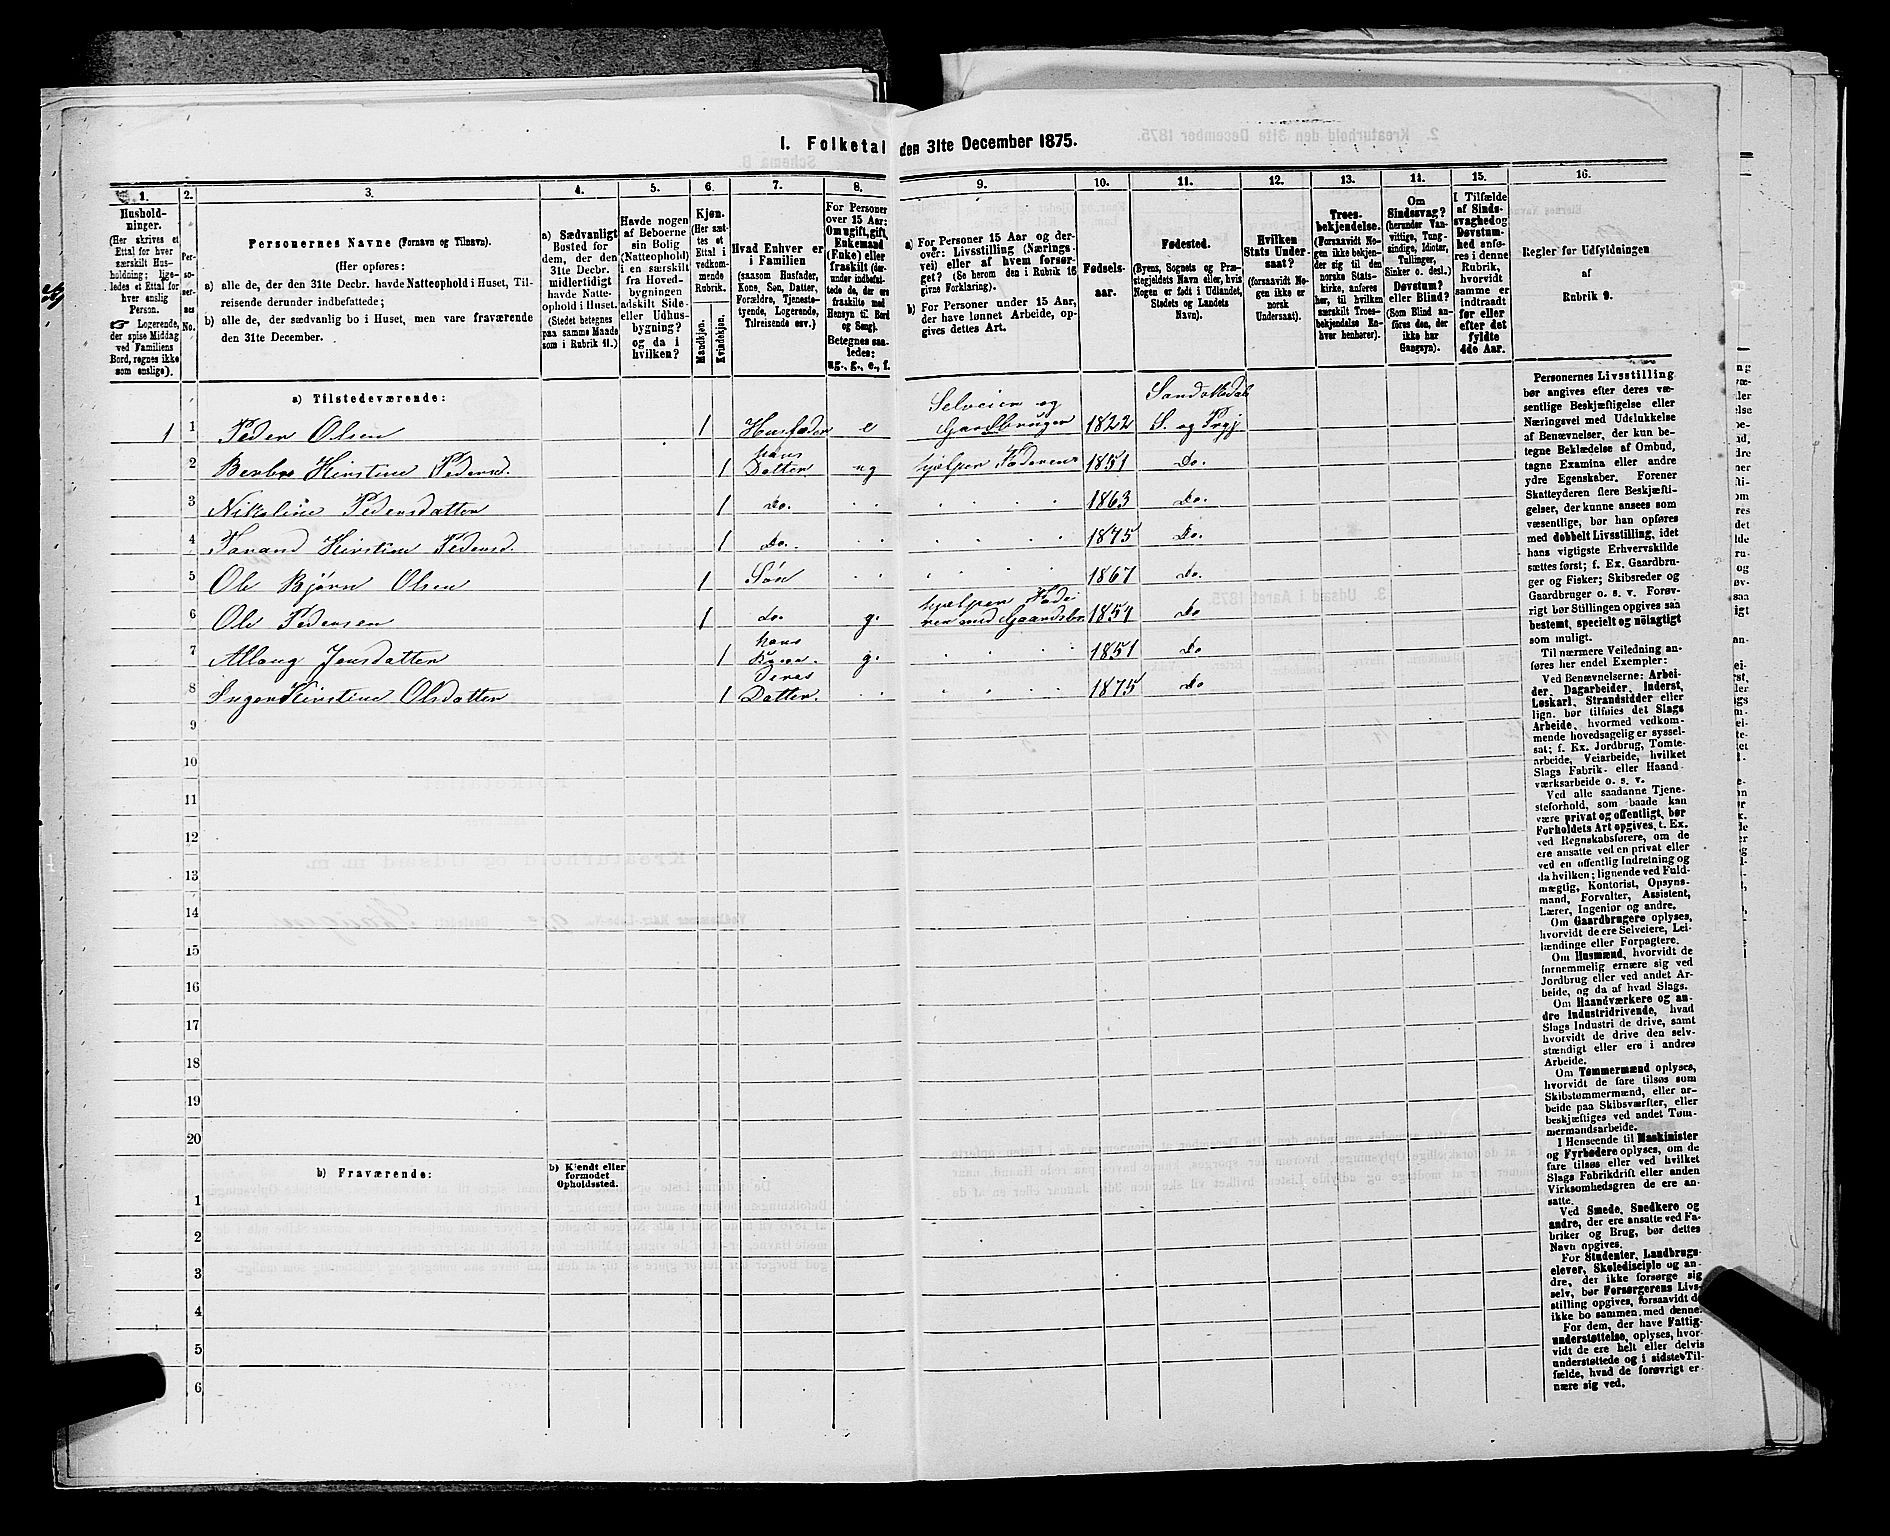 I. Folketal den 31te December 1875.
1. 2. 3. 4. 5. 6. 7. 8. 9. 10. 11. 12. 13. 14. 15. 16.
Husholdninger.
(Her skrives et
Ettal for hver
særskilt Husholdning;
ligeledes et Ettal for
hver enslig
Person.
Logerende,
der spise Middag
ved Familiens
Bord, regnes ikke
som enslige).
Personernes No.
Personernes Navne (Fornavn og Tilnavn).
(Her opføres:
a) alle de, der den 31te Decbr. havde Natteophold i Huset, Tilreisende derunder indbefattede;
b) alle de, der sædvanlig bo i Huset, men vare fraværende
den 31te December.
a) Sædvanligt
Bosted for
dem, der den
31te Decbr.
midlertidigt
havde Natteophold
i Huset.
(Stedet betegnes
paa samme Maade
som i Rubrik 11.)
Havde nogen
af Beboerne
sin Bolig
(Natteophold)
i en særskilt
fra Hovedbygningen
adskilt Side- eller Udhusbygning?
og da i
hvilken?
Kjøn.
(Her sættes et
Ettal i
vedkommende
Rubrik.
Mandkjøn.
Kvindekjøn.
Hvad Enhver er
i Familien
(saasom Husfader,
Kone, Søn, Datter,
Forældre, Tjenestetyende,
Logerende,
Tilreisende osv.)
For Personer
over 15 Aar:
Om ugift, gift,
Enkemand
(Enke) eller
fraskilt (derunder indbefattede
de, der ere
fraskilte med
Hensyn til Bord
og Seng).
Betegnes saaledes:
ug., g., e., f.
a) For Personer 15 Aar og derover: Livsstilling (Næringsvei) eller af hvem forsørget? (Se herom den i Rubrik 16
givne Forklaring).
b) For Personer under 15 Aar,
der have lønnet Arbeide, opgives dettes Art.
Fødselsaar.
Fødested.
(Byens, Sognets og Præstegjeldets Navn eller, hvis
Nogen er født i Udlandet,
Stedets og Landets
Navn).
Hvilken
Stats Undersaat?
(forsaavidt Nogen ikke er
norsk
Undersaat).
Troesbekjendelse.
(Forsaavidt Nogen ikke bekjender sig til den
norske Statskirke, anføres
her, til hvilken
særskilt Troesbekjendelse Enhver henhører).
Om
Sindssvag?
(herunder Vanvittige, Tungsindige, Idioter,
Tullinger,
Sinker o. desl.)
Døvstum?
eller Blind?
(Som Blind anføres den, der
ikke har
Gangsyn).
I Tilfælde
af Sindssvaghed og
Døvstumhed anføres i denne
Rubrik,
hvorvidt
samme er
indtraadt
før eller
efter det
fyldte
4de Aar.
Regler for Udfyldningen
af
Rubrik 9.
a) Tilstedeværende:
1 1 Peder Olsen 1 Husfader e Selveier og Gaardbruger 1822 S. og Prgj
2 Berbro Kirstine Pedersd. 1 hans Datter ug hjelper Faderen 1851 Do.
3 Nikoline Pedersdatter 1 do. 1863 Do.
4 Kirstine Pedersd. 1 Do. 1875 Do.
5 Ole Bjørn Olsen 1 Søn 1867 Do.
6 Ole Pedersen 1 do. g. hjelper 1854 Do
7 Jensdatter 1 hans g. 1851 Do
8 Inger Kirstine Olsdatter 1 deres Datter. 1875 do
9
10
11
12
13
14
15
16
17
18
19
20
b) Fraværende:
b) Kjendt eller
formodet
Opholdssted.
1
2
3
4
5
6
Personernes Livsstilling
bør angives efter deres væsentlige Beskjæftigelse eller
Næringsvei med Udelukkelse
af Benævnelser, der kun betegne Beklædelse af Ombud,
tagne Examina eller andre
ydre Egenskaber. Forener
Skatteyderen flere Beskjæftigelser, der kunne ansees som
væsentlige, bør han opføres
med dobbelt Livsstilling, idet
hans vigtigste Erhvervskilde
sættes først; f. Ex. Gaardbruger og Fisker; Skibsreder og
Gaardbruger o. s. v. Forøvrigt bør Stillingen opgives saa
bestemt, specielt og nøiagtigt
som muligt.
Til nærmere Veiledning anføres her endel Exempler:
Ved Benævnelserne: Arbeider, Dagarbeider, Inderst,
Løskarl, Strandsidder eller
lign. bør tilføies det Slags
Arbeide, hvormed vedkommende hovedsagelig er sysselsat; f. Ex. Jordbrug, Tomtearbeide, Veiarbeide, hvilket
Slags Fabrik- eller Haandværksarbeide o. s. v.
Ved alle saadanne Tjenesteforhold, som baade kan
være privat og offentligt, bør
Forholdets Art opgives, t. Ex.
ved Regnskabsførere, om de
ere ansatte ved en privat eller
ved en offentlig Indretning og
da hvilken; lignende ved Fuldmægtig, Kontorist, Opsynsmand, Forvalter, Assistent,
Lærer, Ingeniør og andre.
Om Gaardbrugere oplyses,
hvorvidt de ere Selveiere, Leilændinge eller Forpagtere.
Om Husmænd, hvorvidt de
fornemmelig ernære sig ved
Jordbrug eller ved andet Arbeide, og da af hvad Slags.
Om Haandværkere og andre Industridrivende, hvad
Slags Industri de drive, samt
hvorvidt de drive den selvstændigt eller ere i andres
Arbeide.
Om Tømmermænd oplyses,
hvorvidt de fare tilsøs som
Skibstømmermænd, eller arbeide paa Skibsværfter, eller
beskjæftiges ved andet Tømmermandsarbeide.
I Henseende til Maskinister
og Fyrbødere oplyses, om de
fare tilsøs eller ved hvilket
Slags Fabrikdrift eller anden
Virksomhedsgren de ere ansatte.
Ved Smede, Snedkere og
andre, der ere ansatte ved Fabriker og Brug, bør dettes
Navn opgives.
For Studenter, Landbrugselever, Skoledisciple og andre, der ikke forsørge sig
selv, bør Forsørgerens Livsstilling opgives, forsaavidt de
ikke bo sammen med denne.
For dem, der have Fattigunderstøttelse, oplyses, hvorvidt de ere helt eller delvis
understøttede og i sidste Tilfælde, hvad de forøvrigt ernære sig ved.